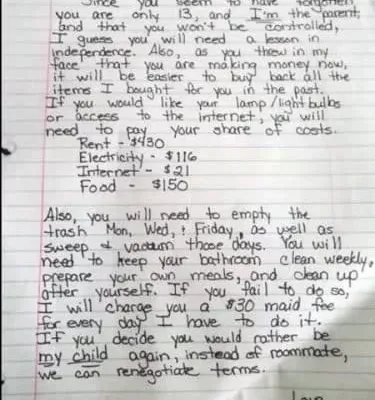 Since you seem to have forgotten
you are only 13, and I'm the parent,
and that you won't be controlled,
I guess you will need a lesson in
independence. Also, as you threw in my
face that you are making money now,
it will be easier to buy back all the
items I bought for you in the past.
If you would like your lamp/light bulbs
or access to the internet, you will
need to pay your share of costs.
Rent - $430
Electricity - $116
Internet - $21
Food - $150
Also, you will need to empty the
trash Mon, Wed, & Friday, as well as
sweep & vacuum those days. You will
need to keep your bathroom clean weekly,
prepare your own meals, and clean up
after yourself. If you fail to do so,
I will charge you a $30 maid fee
for every day I have to do it.
If you decide you would rather be
my child again, instead of roommate,
we can renegotiate terms.